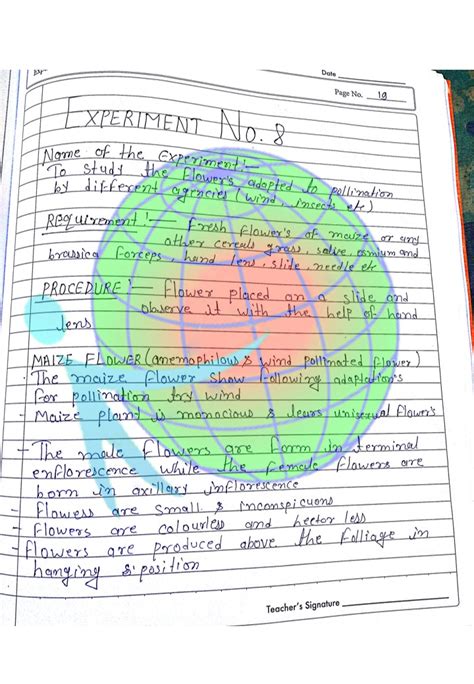 Date
Page No. 19
EXPERIMENT No. 8
Name of the Experiment:-
To study the Flower's adapted to pollination
by different agencies (wind, insects etc)
REQUIREMENT:- Fresh flower's of maize or any
other cereals grass, salve, osmium and
brassica forceps, hand lens, slide, needle etc
PROCEDURE:- flower placed on a slide and
observe it with the help of hand
lens
MAIZE FLOWER (anemophilous & wind pollinated flower)
The maize flower show following adaptation's
for pollination by wind
- Maize plant is monocious & bears unisexual flower's
- The male flowers are form in terminal
enflorescence while the female flowers are
born in axillary inflorescence
- flowers are small & inconspicuons
- flowers are colourless and hector less
- flowers are produced above the folliage in
hanging & position
Teacher's Signature